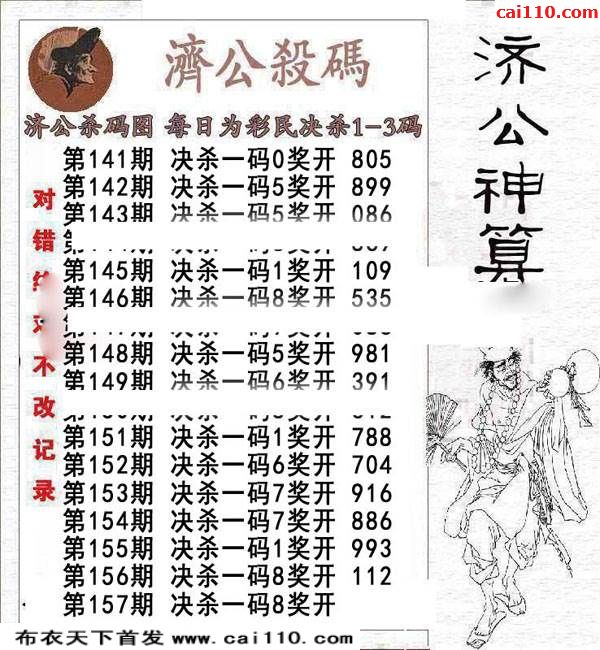 cai110.com
濟公殺碼
济公神算
济公杀码图 每日为彩民决杀1-3码
第141期 决杀一码0奖开 805
第142期 决杀一码5奖开 899
第143期 决杀一码5奖开 086
第145期 决杀一码1奖开 109
第146期 决杀一码8奖开 535
第148期 决杀一码5奖开 981
第149期 决杀一码6奖开 391
第151期 决杀一码1奖开 788
第152期 决杀一码6奖开 704
第153期 决杀一码7奖开 916
第154期 决杀一码7奖开 886
第155期 决杀一码1奖开 993
第156期 决杀一码8奖开 112
第157期 决杀一码8奖开
对错 不改记录
布衣天下首发 www.cai110.com